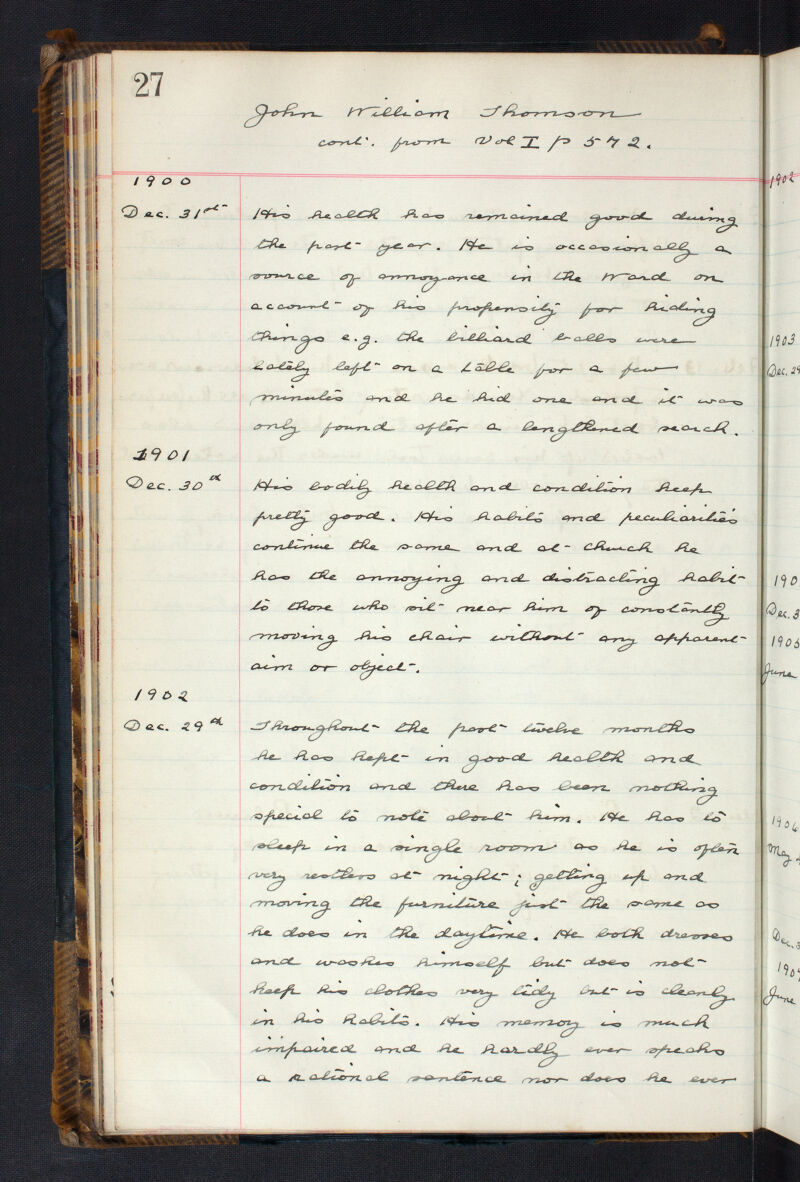 27
John William Thomson
cont. from Vol I p 572.
1900
Dec. 31st His health has remained good during
the past year. He is occasionally a
source of annoyance in the Ward on
account of his propensity for hiding
things e.g. the billiard balls were
lately left on a table for a few
minutes and he hid one and it was
only found after a lengthened search.
1901
Dec. 30th His bodily health and condition keep
pretty good. His habits and peculiarities
continue the same and at church he
has the annoying and distracting habit
to those who sit near him of constantly
moving his chair without any apparent
aim or object.
1902
Dec. 29th Throughout the past twelve months
he has kept in good health and
condition and there has been nothing
special to note about him. He has to
sleep in a single room as he is often
very restless at night; getting up and
moving the furniture just the same as
he does in the daytime. He both dresses
and washes himself but does not
keep his clothes very tidy but is cleanly
in his habits. His memory is much
impaired and he hardly ever speaks
a rational sentence nor does he ever
1902
1903
Dec. 29
190
Dec. 3
1905
June
1906
May
Dec. 3
1907
June